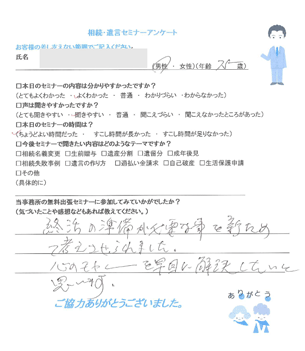 相続・遺言セミナーアンケート
お客様の差し支えない範囲でご記入ください。
氏名
(男性 ・ 女性)(年齢 75 歳)
□本日のセミナーの内容は分かりやすかったですか?
(・とてもよくわかった ・よくわかった ・ 普通 ・ わかりづらい ・わからなかった)
□声は聞きやすかったですか?
(・とても聞きやすい ・聞きやすい ・ 普通 ・ 聞こえづらい ・ 聞こえなかったところがあった)
□本日のセミナーの時間は?
(・ちょうどよい時間だった ・ すこし時間が長かった ・ すこし時間が足りなかった)
□今後セミナーで聞きたい内容はどのようなテーマですか?
□相続名義変更 □生前贈与 □遺産分割 □遺留分 □成年後見
□相続失敗事例 □遺言の作り方 □過払い金請求 □自己破産 □生活保護申請
□その他
(具体的に)
当事務所の無料出張セミナーに参加してみていかがでしたか?
(気づいたことや感想などもあれば教えてください。)
終活の準備が必要な事を新ため
て考えさせられました。
を早目に解決したいと
思います。
ご協力ありがとうございました。
ありがとう